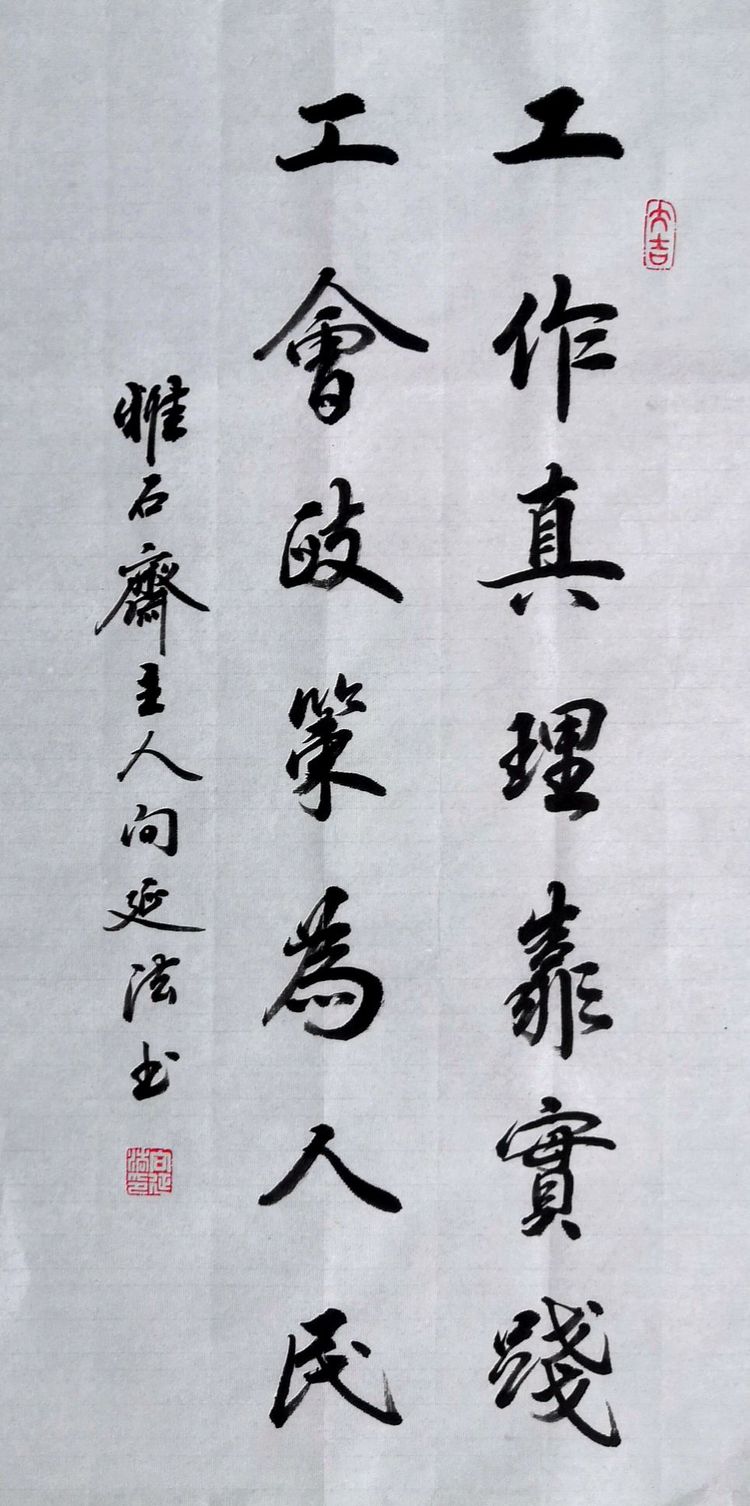 工作真理靠實踐
大吉
工會政策為人民
雅石齋主人向延法书
向延法印